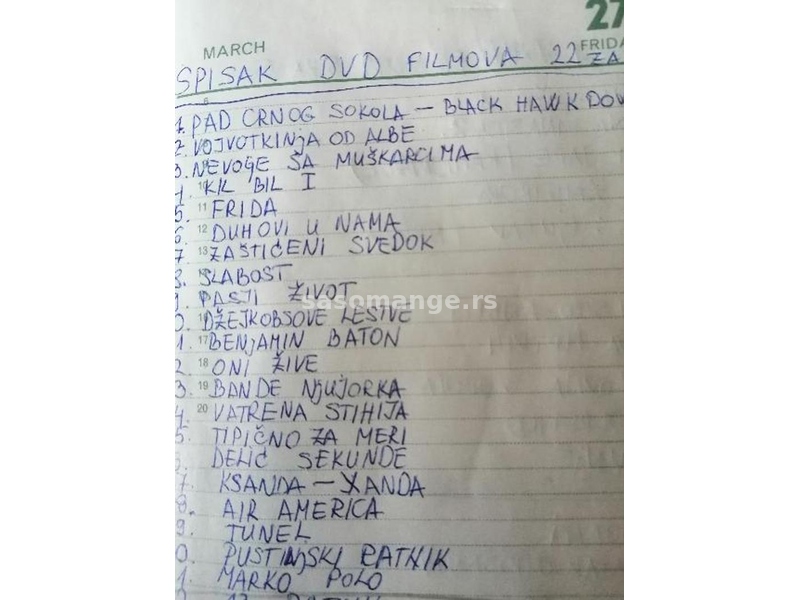 27
MARCH
FRIDA
SPISAK DVD FILMOVA 22 ZA
1. PAD CRNOG SOKOLA – BLACK HAWK DOW
2. VOJVOTKINJA OD ALBE
3. NEVOGE ŠA MUŠKARCIMA
4. KIL BIL I
11
5. FRIDA
12
6 DUHOVI U NAMA
13
7 ZAŠTIĆENI SVEDOK
8. SLABOST
9. PASJI ŽIVOT
sasomange.rs
0. DŽEJKOBSOVE LESTVE
17
1. BENJAMIN BATON
18
2 ONI ŽIVE
19
3. BANDE NJUJORKA
20
4. VATRENA STIHIJA
5. TIPIČNO ZA MERI
DELIĆ SEKUNDE
7. KSANDA – XANDA
8. AIR AMERICA
9. TUNEL
0. PUSTINJSKI RATNIK
1. MARKO POLO
13